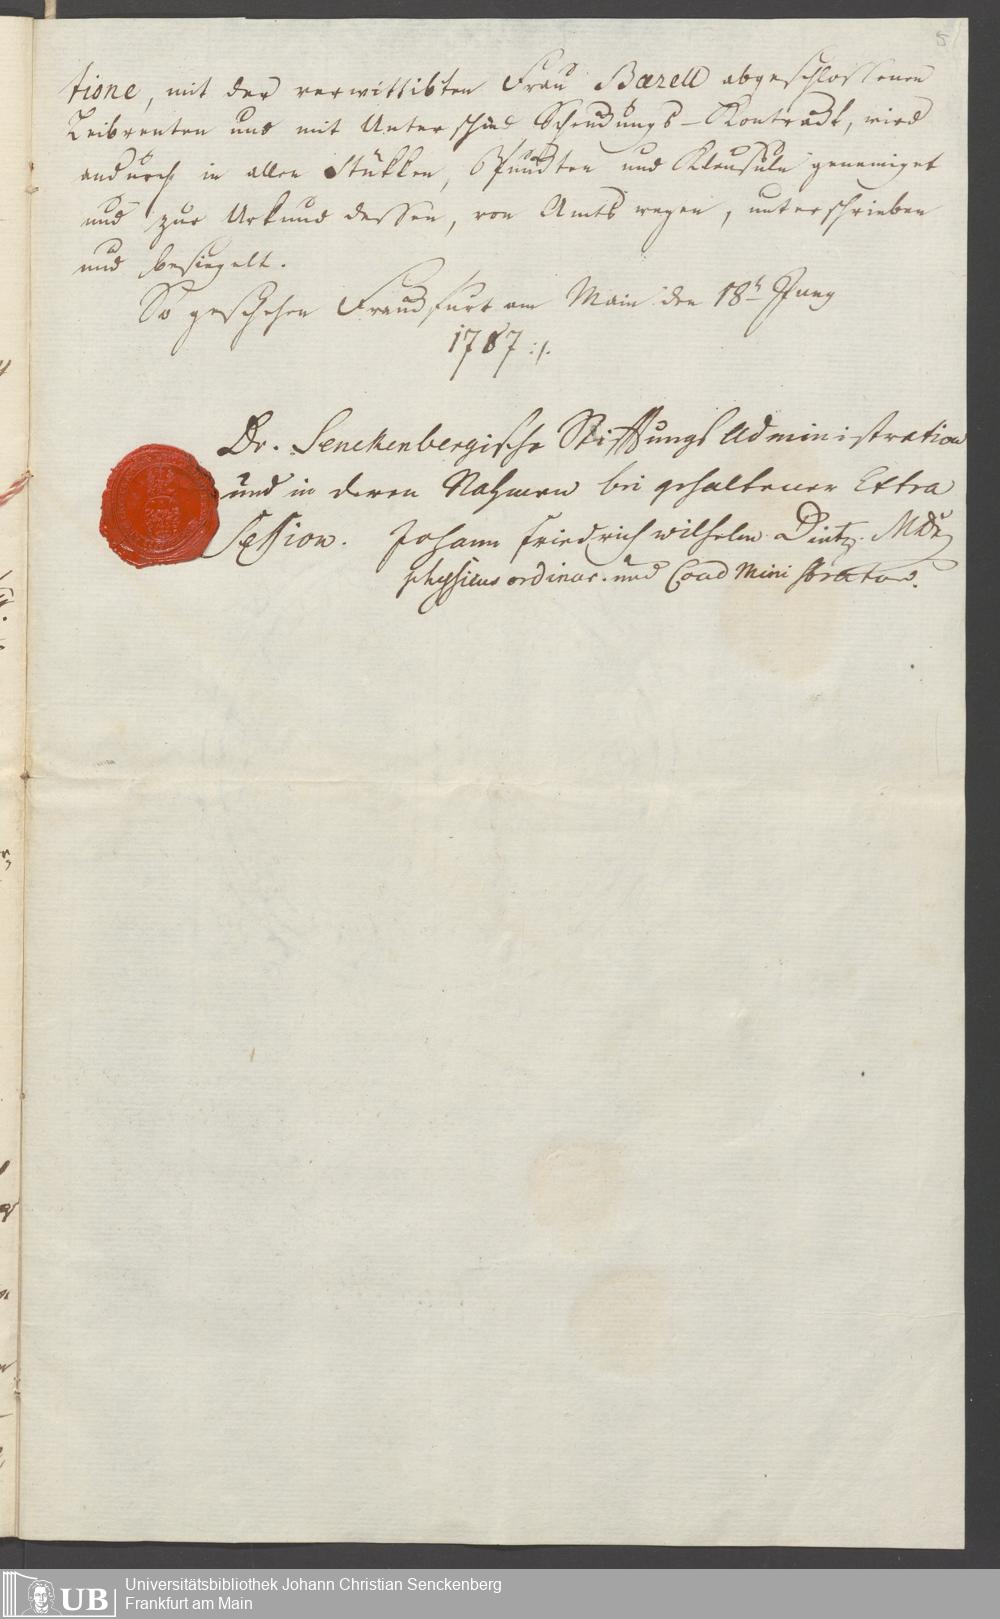 5
tione, mit der verwittibten Frau Bærell abgeschlossenen
Leibrenten und mit Unterschied Schenckungs-Kontrackt, wird
andurch in allen Stükken, Punckten und Klausuln genemiget
und zur Urkund dessen, von Amts wegen, unterschrieben
und besiegelt.
So geschehen Franckfurt am Main den 18t Juny
1787 :/.
Dr. Senckenbergische Stifftungs Administration
und in deren Nahmen bei gehaltener Extra
Session. Johann Friedrich Wilhelm Dietz. MDr
physicus ordinar. und Coadministrator.
UB
Universitätsbibliothek Johann Christian Senckenberg
Frankfurt am Main